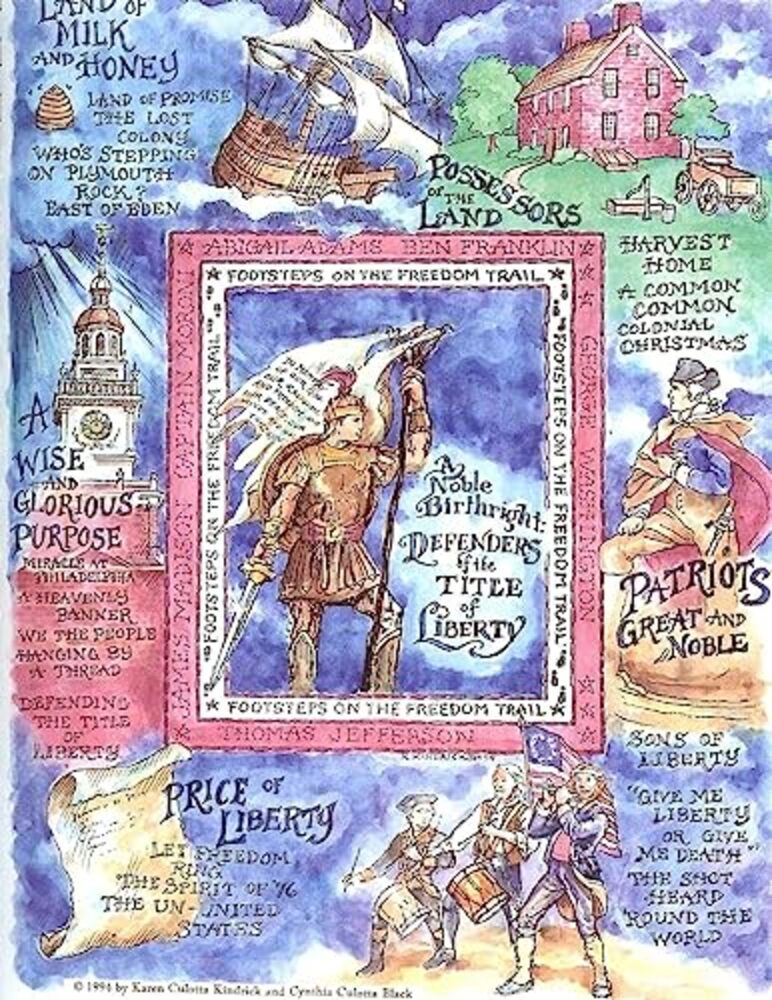 LAND OF
MILK
AND HONEY
LAND OF PROMISE
THE LOST
COLONY
WHO'S STEPPING
ON PLYMOUTH
ROCK?
EAST OF EDEN
POSSESSORS
OF THE
LAND
HARVEST
HOME
A COMMON
COMMON
COLONIAL
CHRISTMAS
ABIGAIL ADAMS BEN FRANKLIN
FOOTSTEPS ON THE FREEDOM TRAIL
JAMES MADISON CAPTAIN MORONI
FOOTSTEPS ON THE FREEDOM TRAIL
FOOTSTEPS ON THE FREEDOM TRAIL
GEORGE WASHINGTON
A
WISE
AND
GLORIOUS
PURPOSE
MIRACLE AT
PHILADELPHIA
A HEAVENLY
BANNER
WE THE PEOPLE
HANGING BY
A THREAD
DEFENDING
THE TITLE
OF
LIBERTY
A
Noble
Birthright:
DEFENDERS
of the
TITLE
of
LIBERTY
PATRIOTS
GREAT AND
NOBLE
FOOTSTEPS ON THE FREEDOM TRAIL
THOMAS JEFFERSON
PRICE OF
LIBERTY
LET FREEDOM
RING
THE SPIRIT OF '76
THE UN-UNITED
STATES
SONS OF
LIBERTY
"GIVE ME
LIBERTY
OR GIVE
ME DEATH"
THE SHOT
HEARD
'ROUND THE
WORLD
© 1994 by Karen Culotta Kindrick and Cynthia Culotta Black